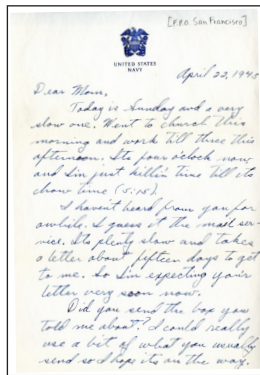 [F.P.O. San Francisco]
UNITED STATES
NAVY
April 22, 1945
Dear Mom,
Today is Sunday and a very
slow one. Went to church this
morning and work till three this
afternoon. Its four oclock now
and Im just killin' time till its
chow time (5:15).
I havent heard from you for
awhile. I guess it the mail ser-
vice. Its plenty slow and takes
a letter about fifteen days to get
to me. So Im expecting your
letter very soon now.
Did you send the box you
told me about? I could really
use a bit of what you usually
send so I hope its on the way.